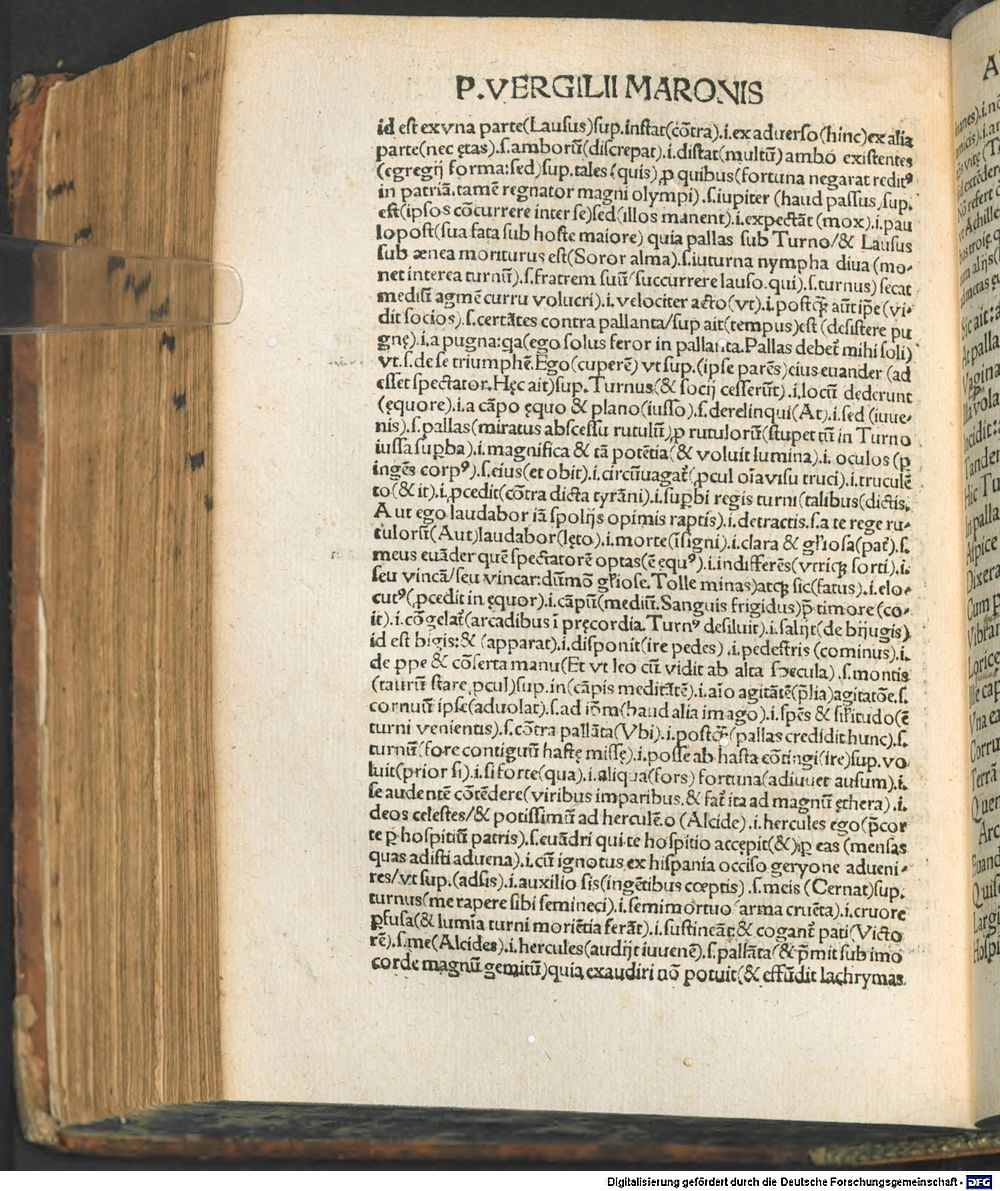 P.VERGILII MARONIS
id est ex vna parte(Lausus)sup.instat(cõtra).i.ex aduerso(hinc)ex alia
parte(nec ętas).s.amborũ(discrepat).i.distat(multũ)ambo existentes
(egregij forma:sed)sup.tales(quis)ꝓ quibus(fortuna negarat reditꝰ
in patriã.tamẽ regnator magni olympi).s.iupiter (haud passus sup.
est(ipsos cõcurrere inter se)sed(illos manent).i.expectãt (mox).i.pau
lopost(sua fata sub hoste maiore) quia pallas sub Turno/& Lausus
sub ænea moriturus est(Soror alma).s.iuturna nympha diua (mo-
net interea turnũ).s.fratrem suũ succurrere lauso.qui).s.turnus) secat
mediũ agmẽ curru volucri).i.velociter acto(vt).i.postꝗ̃ aũt ip̃e (vi-
dit socios).s.certãtes contra pallanta/sup ait(tempus)est (desistere pu
gnę).i.a pugna:qa(ego solus feror in pallanta.Pallas debet̃ mihi soli)
vt.s.de se triumphẽ.Ego(cuperẽ) vt sup.(ipse parẽs)eius euander (ad
esset spectator.Hęc ait)sup.Turnus(& socij cesserũt).i.locũ dederunt
(ęquore).i.a cãpo ęquo & plano(iusso).s.derelinqui(At).i.sed (iuue-
nis).s.pallas(miratus abscessu rutulũ)ꝓ rutulorũ(stupet tũ in Turno
iussa suꝑba).i.magnifica & tã potẽtia(& voluit lumina).i. oculos (ꝑ
ingẽs corpꝰ).s.eius(et obit).i.circũuagat̃(ꝓcul oĩa visu truci).i.truculẽ
to(& it).i.ꝓcedit(cõtra dicta tyrãni).i.suꝑbi regis turni(talibus(dictis.
Aut ego laudabor iã spolijs opimis raptis).i.detractis.s.a te rege ru-
tulorũ(Aut)laudabor(lęto).i.morte(ĩsigni).i.clara & gl̃iosa(pat̃).s.
meus euãder quẽ spectatorẽ optas(ẽ ęquꝰ).i.indifferẽs(vtriqꝫ sorti).i.
seu vincã/seu vincar:dũmõ gl̃iose.Tolle minas)atqꝫ sic(fatus).i.elo-
cutꝰ(ꝓcedit in ęquor).i.cãpũ(mediũ.Sanguis frigidus)p̃ timore (co-
it).i.cõgelat̃(arcadibus ĩ pręcordia.Turnꝰ desiluit).i.salijt(de bijugis)
id est bigis:& (apparat).i.disponit(ire pedes) .i.pedestris (cominus).i.
de ꝓpe & cõserta manu(Et vt leo cũ vidit ab alta specula) .s.montis
(taurũ stare ꝓcul)sup.in(cãpis meditãtẽ).i.aĩo agitãtẽ(p̃lia)agitatõe.s.
cornuũ ipse(aduolat).s.ad ip̃m(haud alia imago).i.spẽs & sil̃itudo(ẽ
turni venientis).s.cõtra pallãta(Vbi).i.postꝗ̃ (pallas credidit hunc).s.
turnũ(fore contiguũ hastę missę).i.posse ab hasta cõtingi(ire)sup.vo
luit(prior si).i.si forte(qua).i.aliqua(fors) fortuna(adiuuet ausum).i.
se audentẽ cõtẽdere(viribus imparibus.& fat̃ ita ad magnũ ęthera) .i.
deos celestes/& potissimũ ad herculẽ.o (Alcide).i.hercules ego(p̃cor
te ꝑ hospitiũ patris).s.euãdri qui te hospitio accępit(&)ꝑ eas (mensas
quas adisti aduena).i.cũ ignotus ex hispania occiso geryone adueni-
res/vt sup.(adsis).i.auxilio sis(ingẽtibus cœptis) .s.meis (Cernat)sup.
turnus(me rapere sibi semineci).i.semimortuo(arma cruẽta).i.cruore
ꝑfusa(& lumĩa turni moriẽtia ferãt).i.sustineãt:& cogant̃ pati(Victo
rẽ).s.me(Alcides).i.hercules(audijt iuuenẽ).s.pallãta(& p̃mit sub imo
corde magnũ gemitũ)quia exaudiri nõ potuit(& effũdit lachrymas
Digitalisierung gefördert durch die Deutsche Forschungsgemeinschaft - DFG